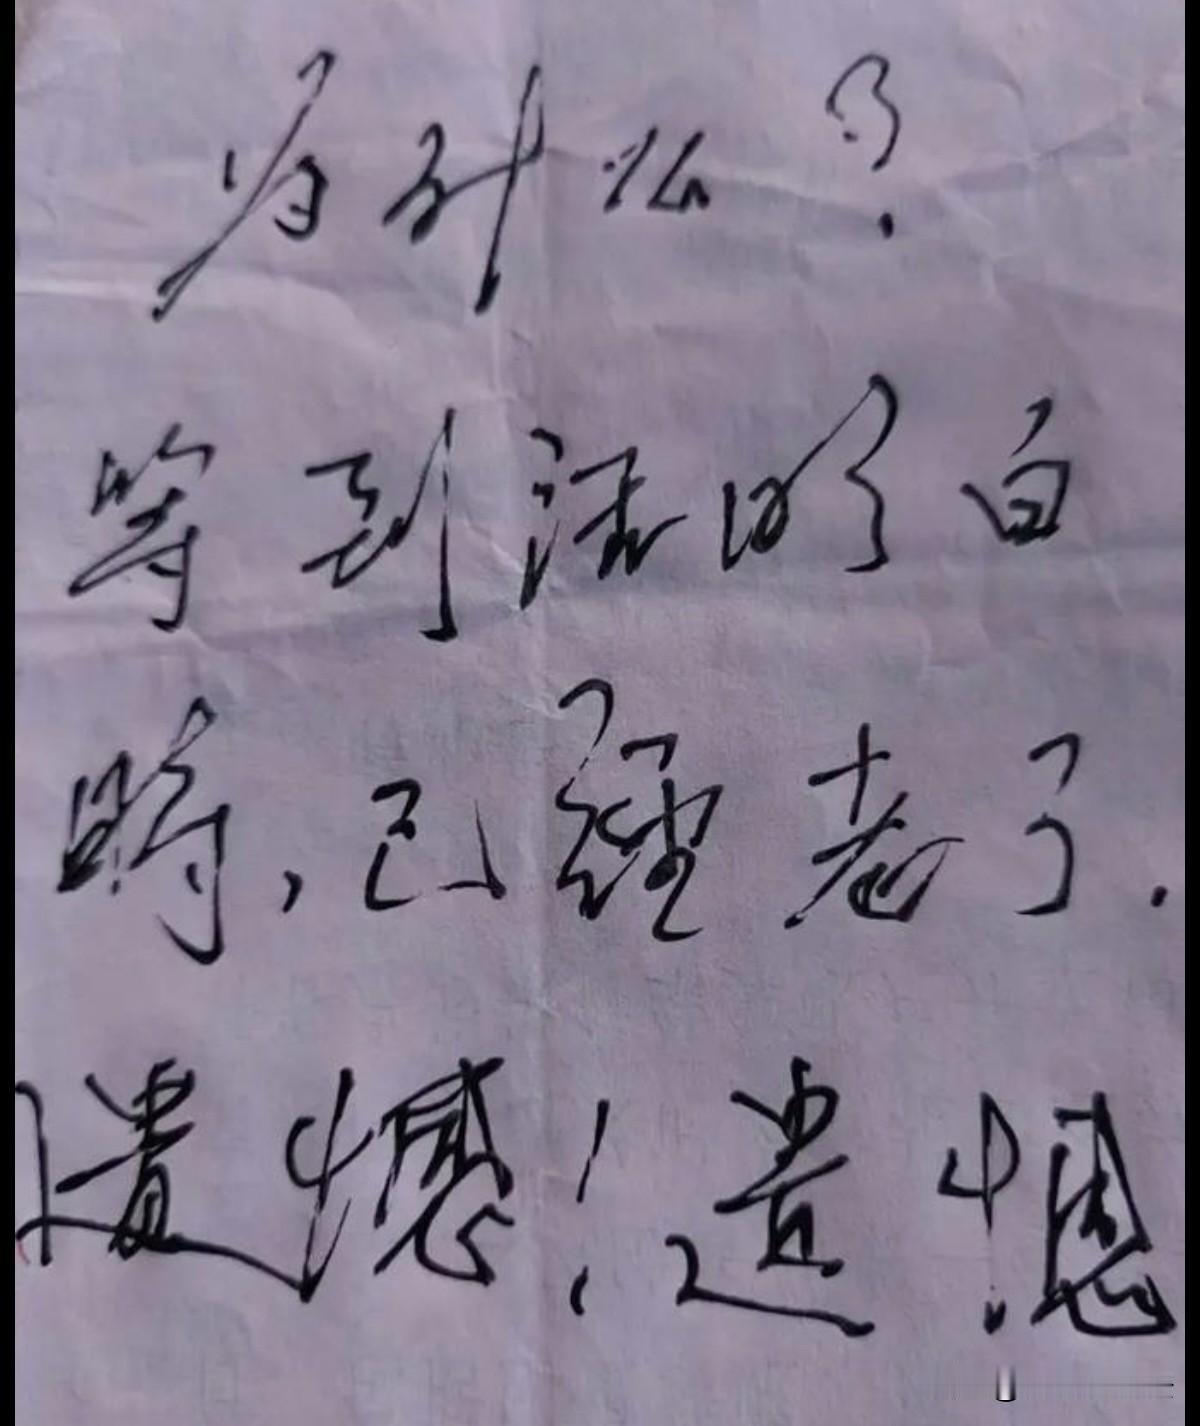 为什么？
等到活明白
時，已經老了.
遗憾！遗憾